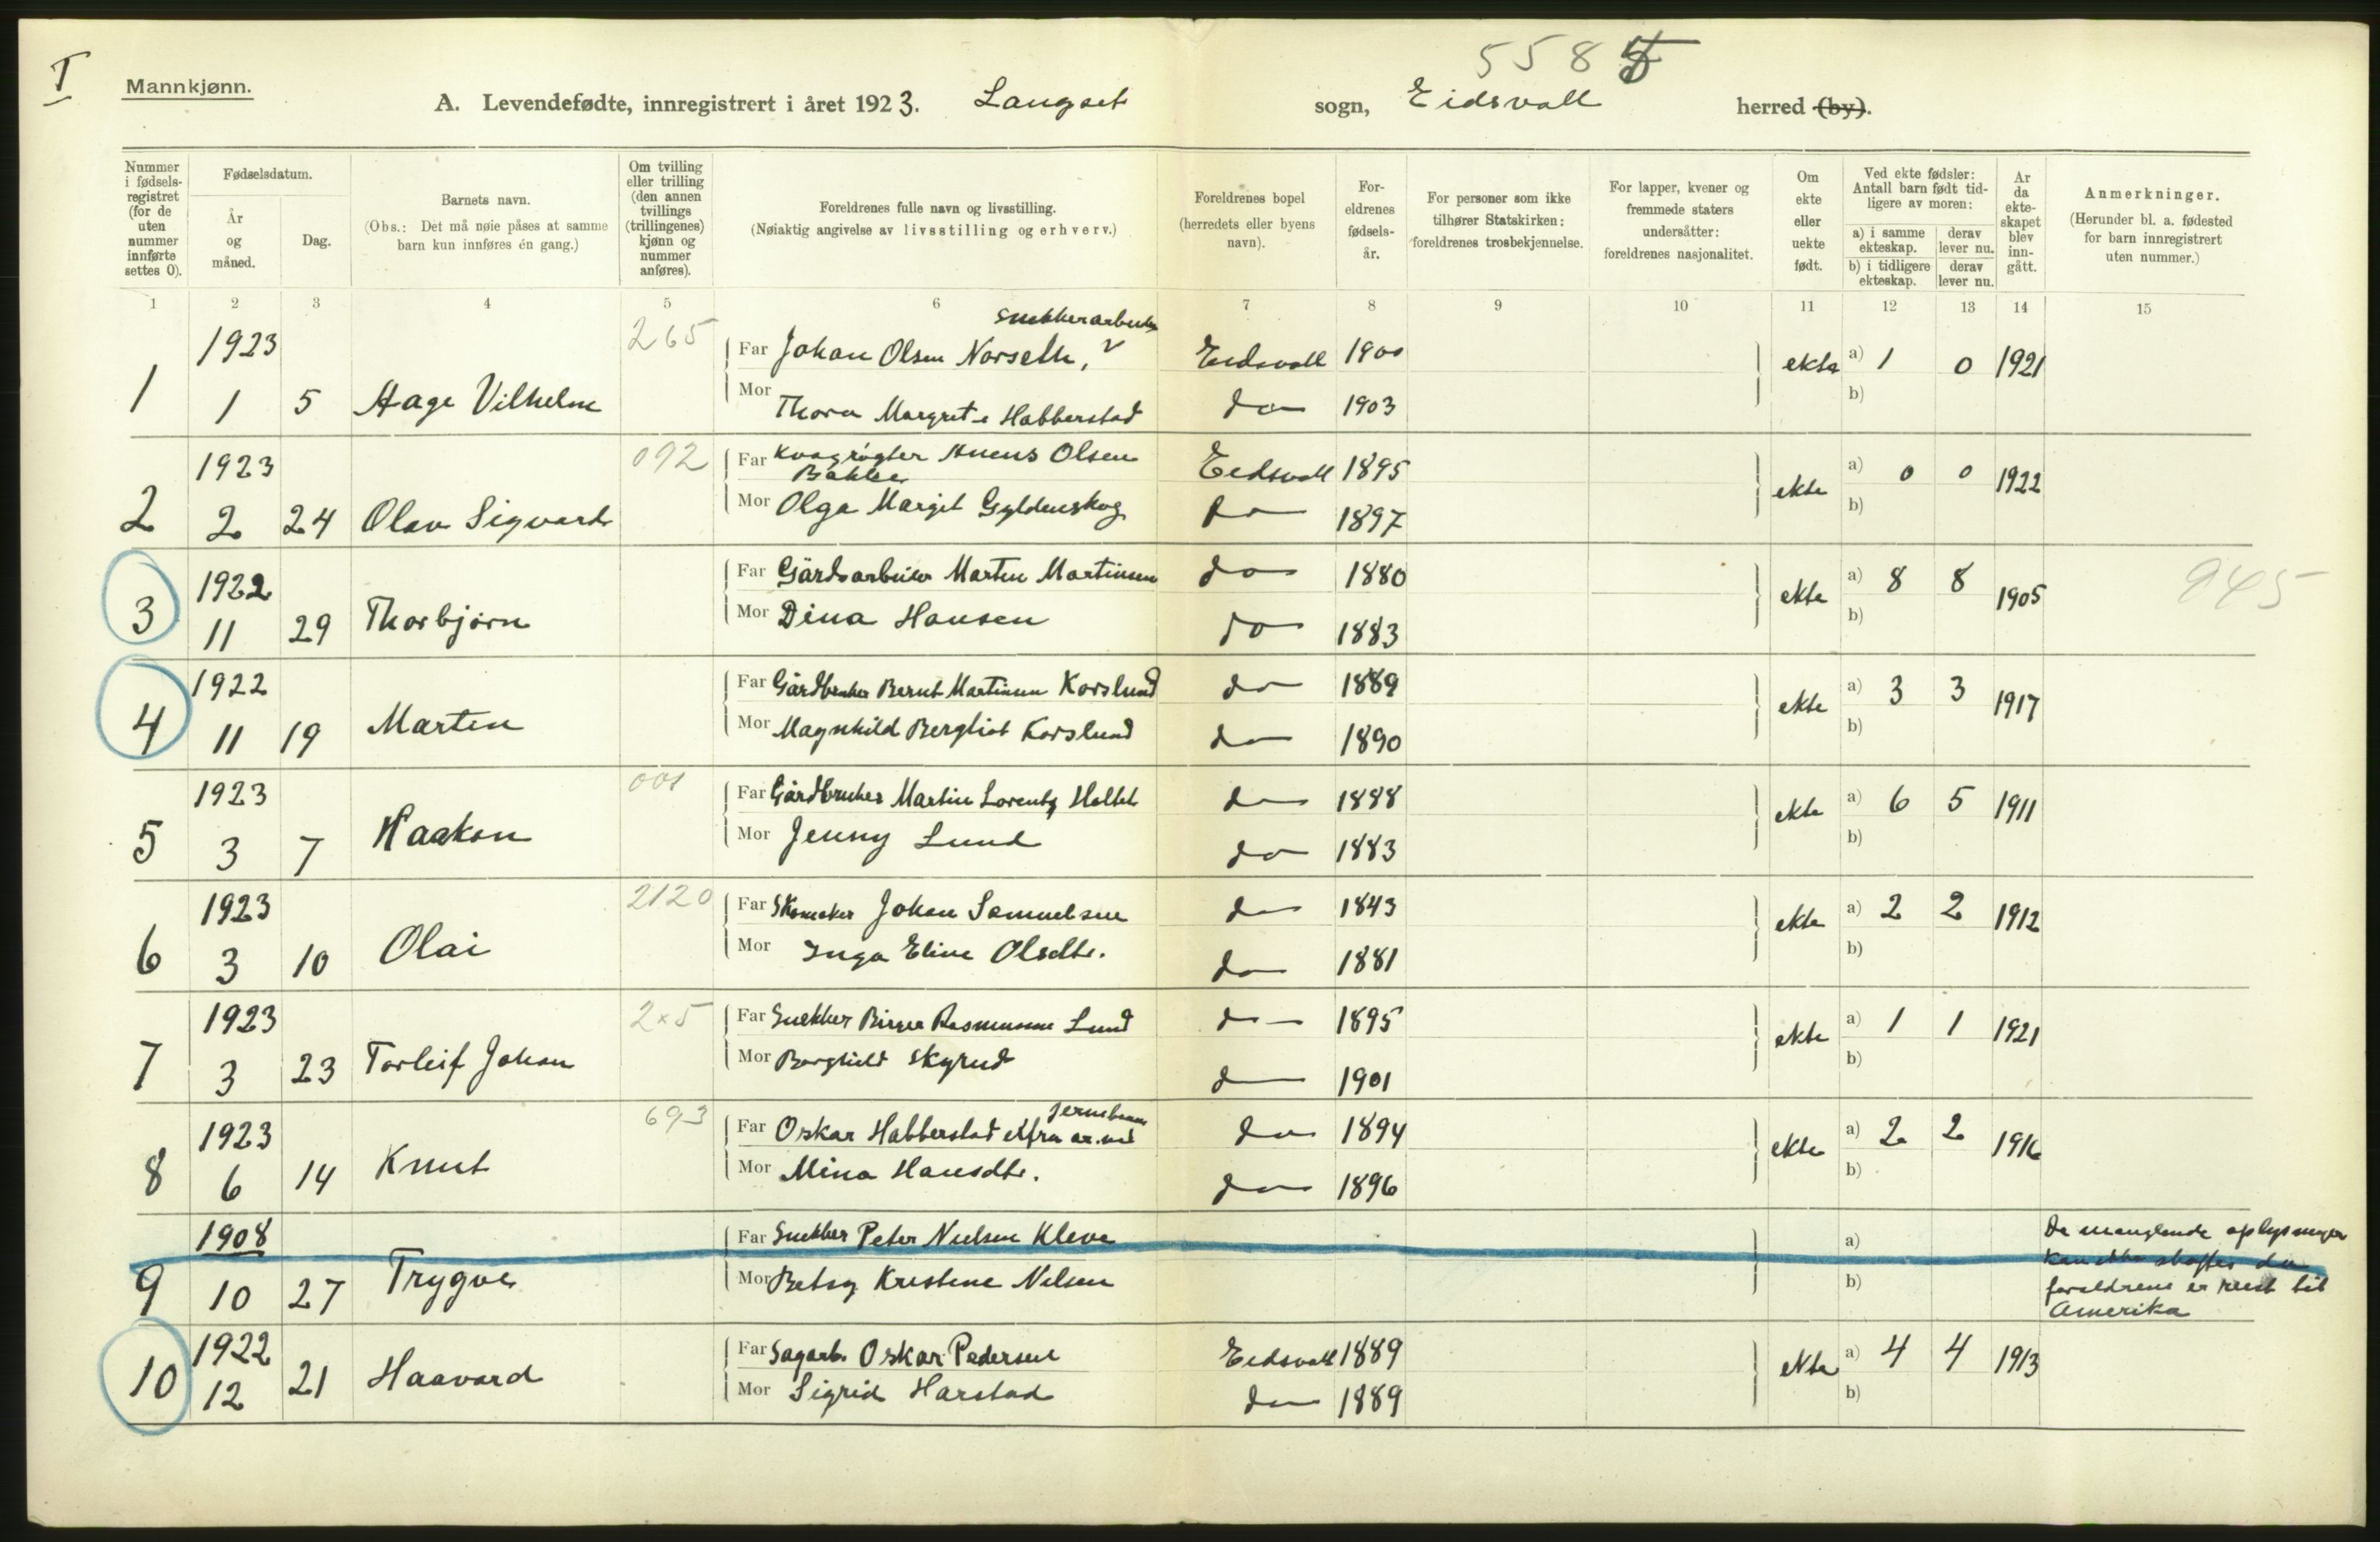 I
5585
Mannkjønn.
A. Levendefødte, innregistrert i året 1923. Langset sogn, Eidsvoll herred (by).
Nummer i fødsels-registret (for de uten nummer innførte settes 0).
Fødselsdatum.
År og måned.
Dag.
Barnets navn.
(Obs.: Det må nøie påses at samme barn kun innføres én gang.)
Om tvilling eller trilling (den annen tvillings (trillingenes) kjønn og nummer anføres).
Foreldrenes fulle navn og livsstilling.
(Nøiaktig angivelse av livsstilling og erhverv.)
Foreldrenes bopel (herredets eller byens navn).
For-eldrenes fødsels-år.
For personer som ikke tilhører Statskirken: foreldrenes trosbekjennelse.
For lapper, kvener og fremmede staters undersåtter: foreldrenes nasjonalitet.
Om ekte eller uekte født.
Ved ekte fødsler: Antall barn født tid-ligere av moren:
a) i samme ekteskap. derav lever nu.
b) i tidligere ekteskap. derav lever nu.
År da ekte-skapet blev inn-gått.
Anmerkninger.
(Herunder bl. a. fødested for barn innregistrert uten nummer.)
1 2 3 4 5 6 7 8 9 10 11 12 13 14 15
1 1923 1 5 Aage Vilhelm 265
Far Johan Olsen Norseth, Snekkerarbeider Eidsvoll 1900 ekte a) 1 0 1921
Mor Thora Margrete Habberstad do 1903 b)
2 1923 2 24 Olav Sigvard 092
Far Kvægrøgter Anens Olsen Bakke Eidsvoll 1895 ekte a) 0 0 1922
Mor Olga Margit Gyldenskog do 1897 b)
3 1922 11 29 Thorbjørn
Far Gårdsarbeider Marten Martinsen do 1880 ekte a) 8 8 1905 945
Mor Dina Hansen do 1883 b)
4 1922 11 19 Marten
Far Gårdbruker Bernt Martinsen Korslund do 1889 ekte a) 3 3 1917
Mor Magnhild Bergliot Korslund do 1890 b)
5 1923 3 7 Haakon 001
Far Gårdbruker Martin Lorentz Holtet do 1888 ekte a) 6 5 1911
Mor Jenny Lund do 1883 b)
6 1923 3 10 Olai 2120
Far Skomaker Johan Samuelsen do 1843 ekte a) 2 2 1912
Mor Inga Eline Olsdtr. do 1881 b)
7 1923 3 23 Torleif Johan 2x5
Far Snekker Birger Rasmussen Lund do 1895 ekte a) 1 1 1921
Mor Borghild Skyrud do 1901 b)
8 1923 6 14 Knut 693
Far Oskar Habberstad Jernbane do 1894 ekte a) 2 2 1916
Mor Mina Hansdtr. do 1896 b)
9 1908 10 27 Trygve
Far Snekker Peter Nielsen Kleve a) De manglende oplysninger
kan ikke skaffes da
Mor Betsy Kristine Nilsen b) foreldrene er reist til
Amerika
10 1922 12 21 Haavard
Far Sagarb. Oskar Pedersen Eidsvoll 1889 ekte a) 4 4 1913
Mor Sigrid Harstad do 1889 b)